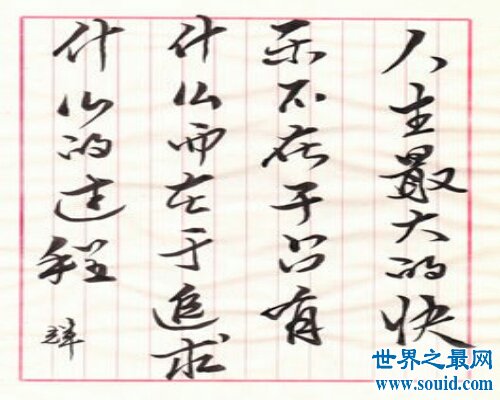 人生最大的快
乐不在于占有
什么而在于追求
什么的过程
世界之最网
www.souid.com